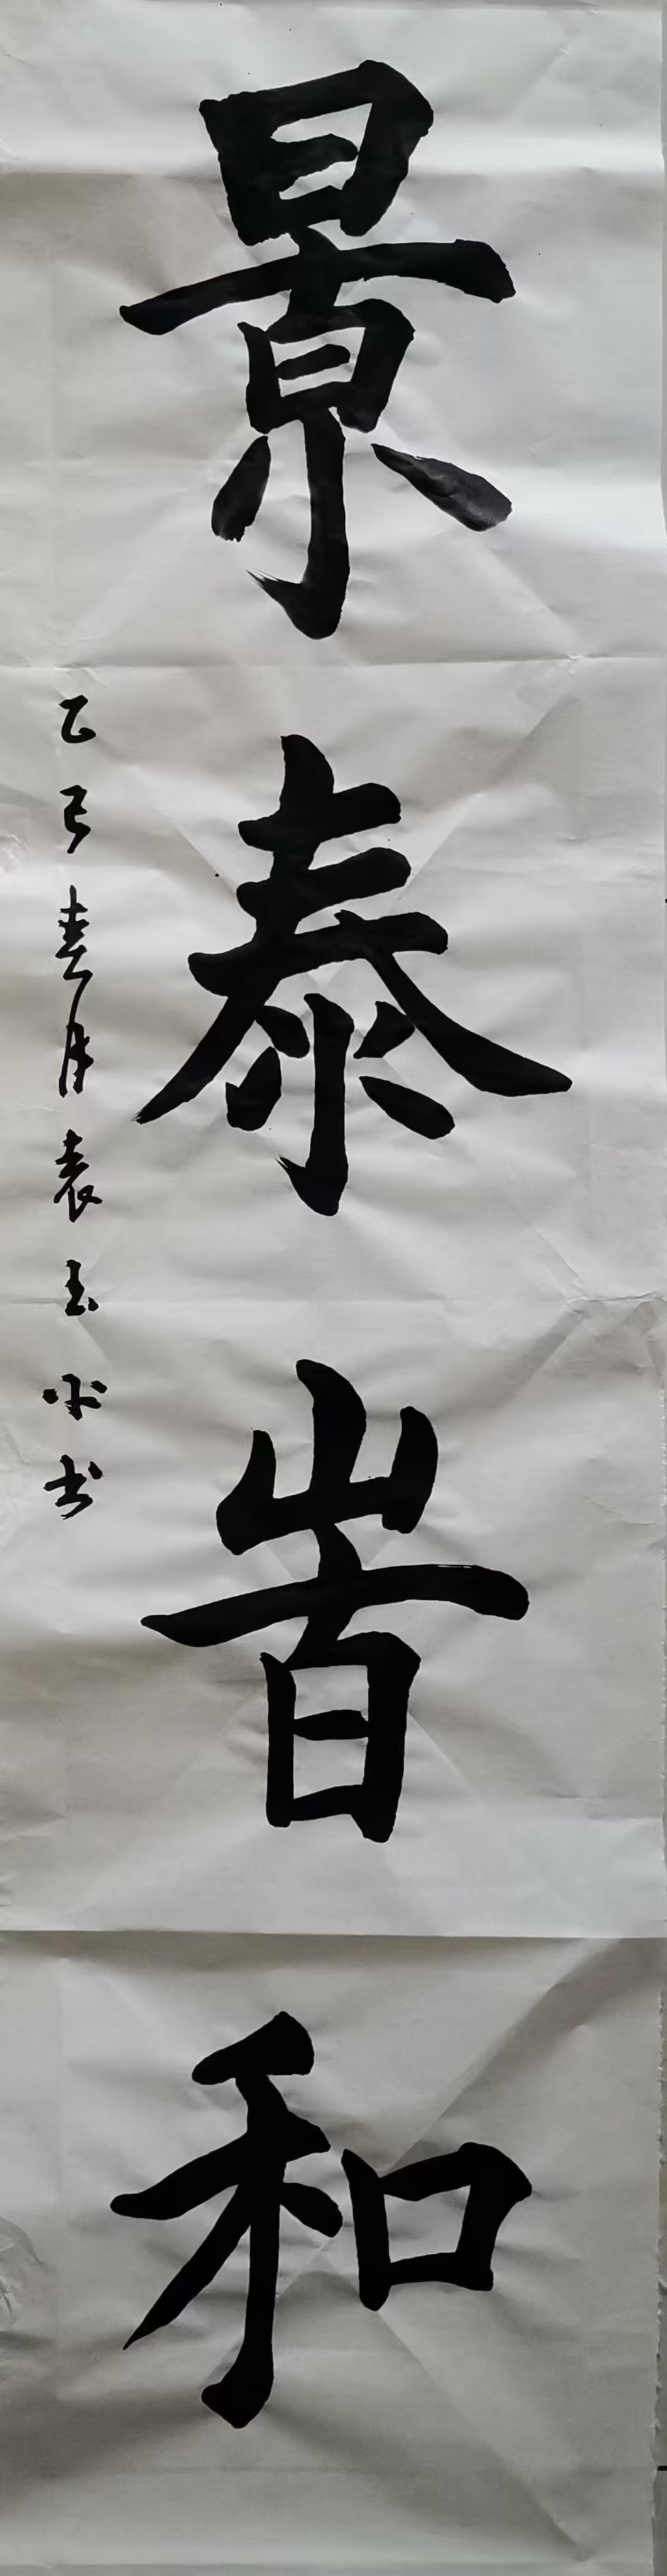 景泰峕和
乙巳春月袁玉书